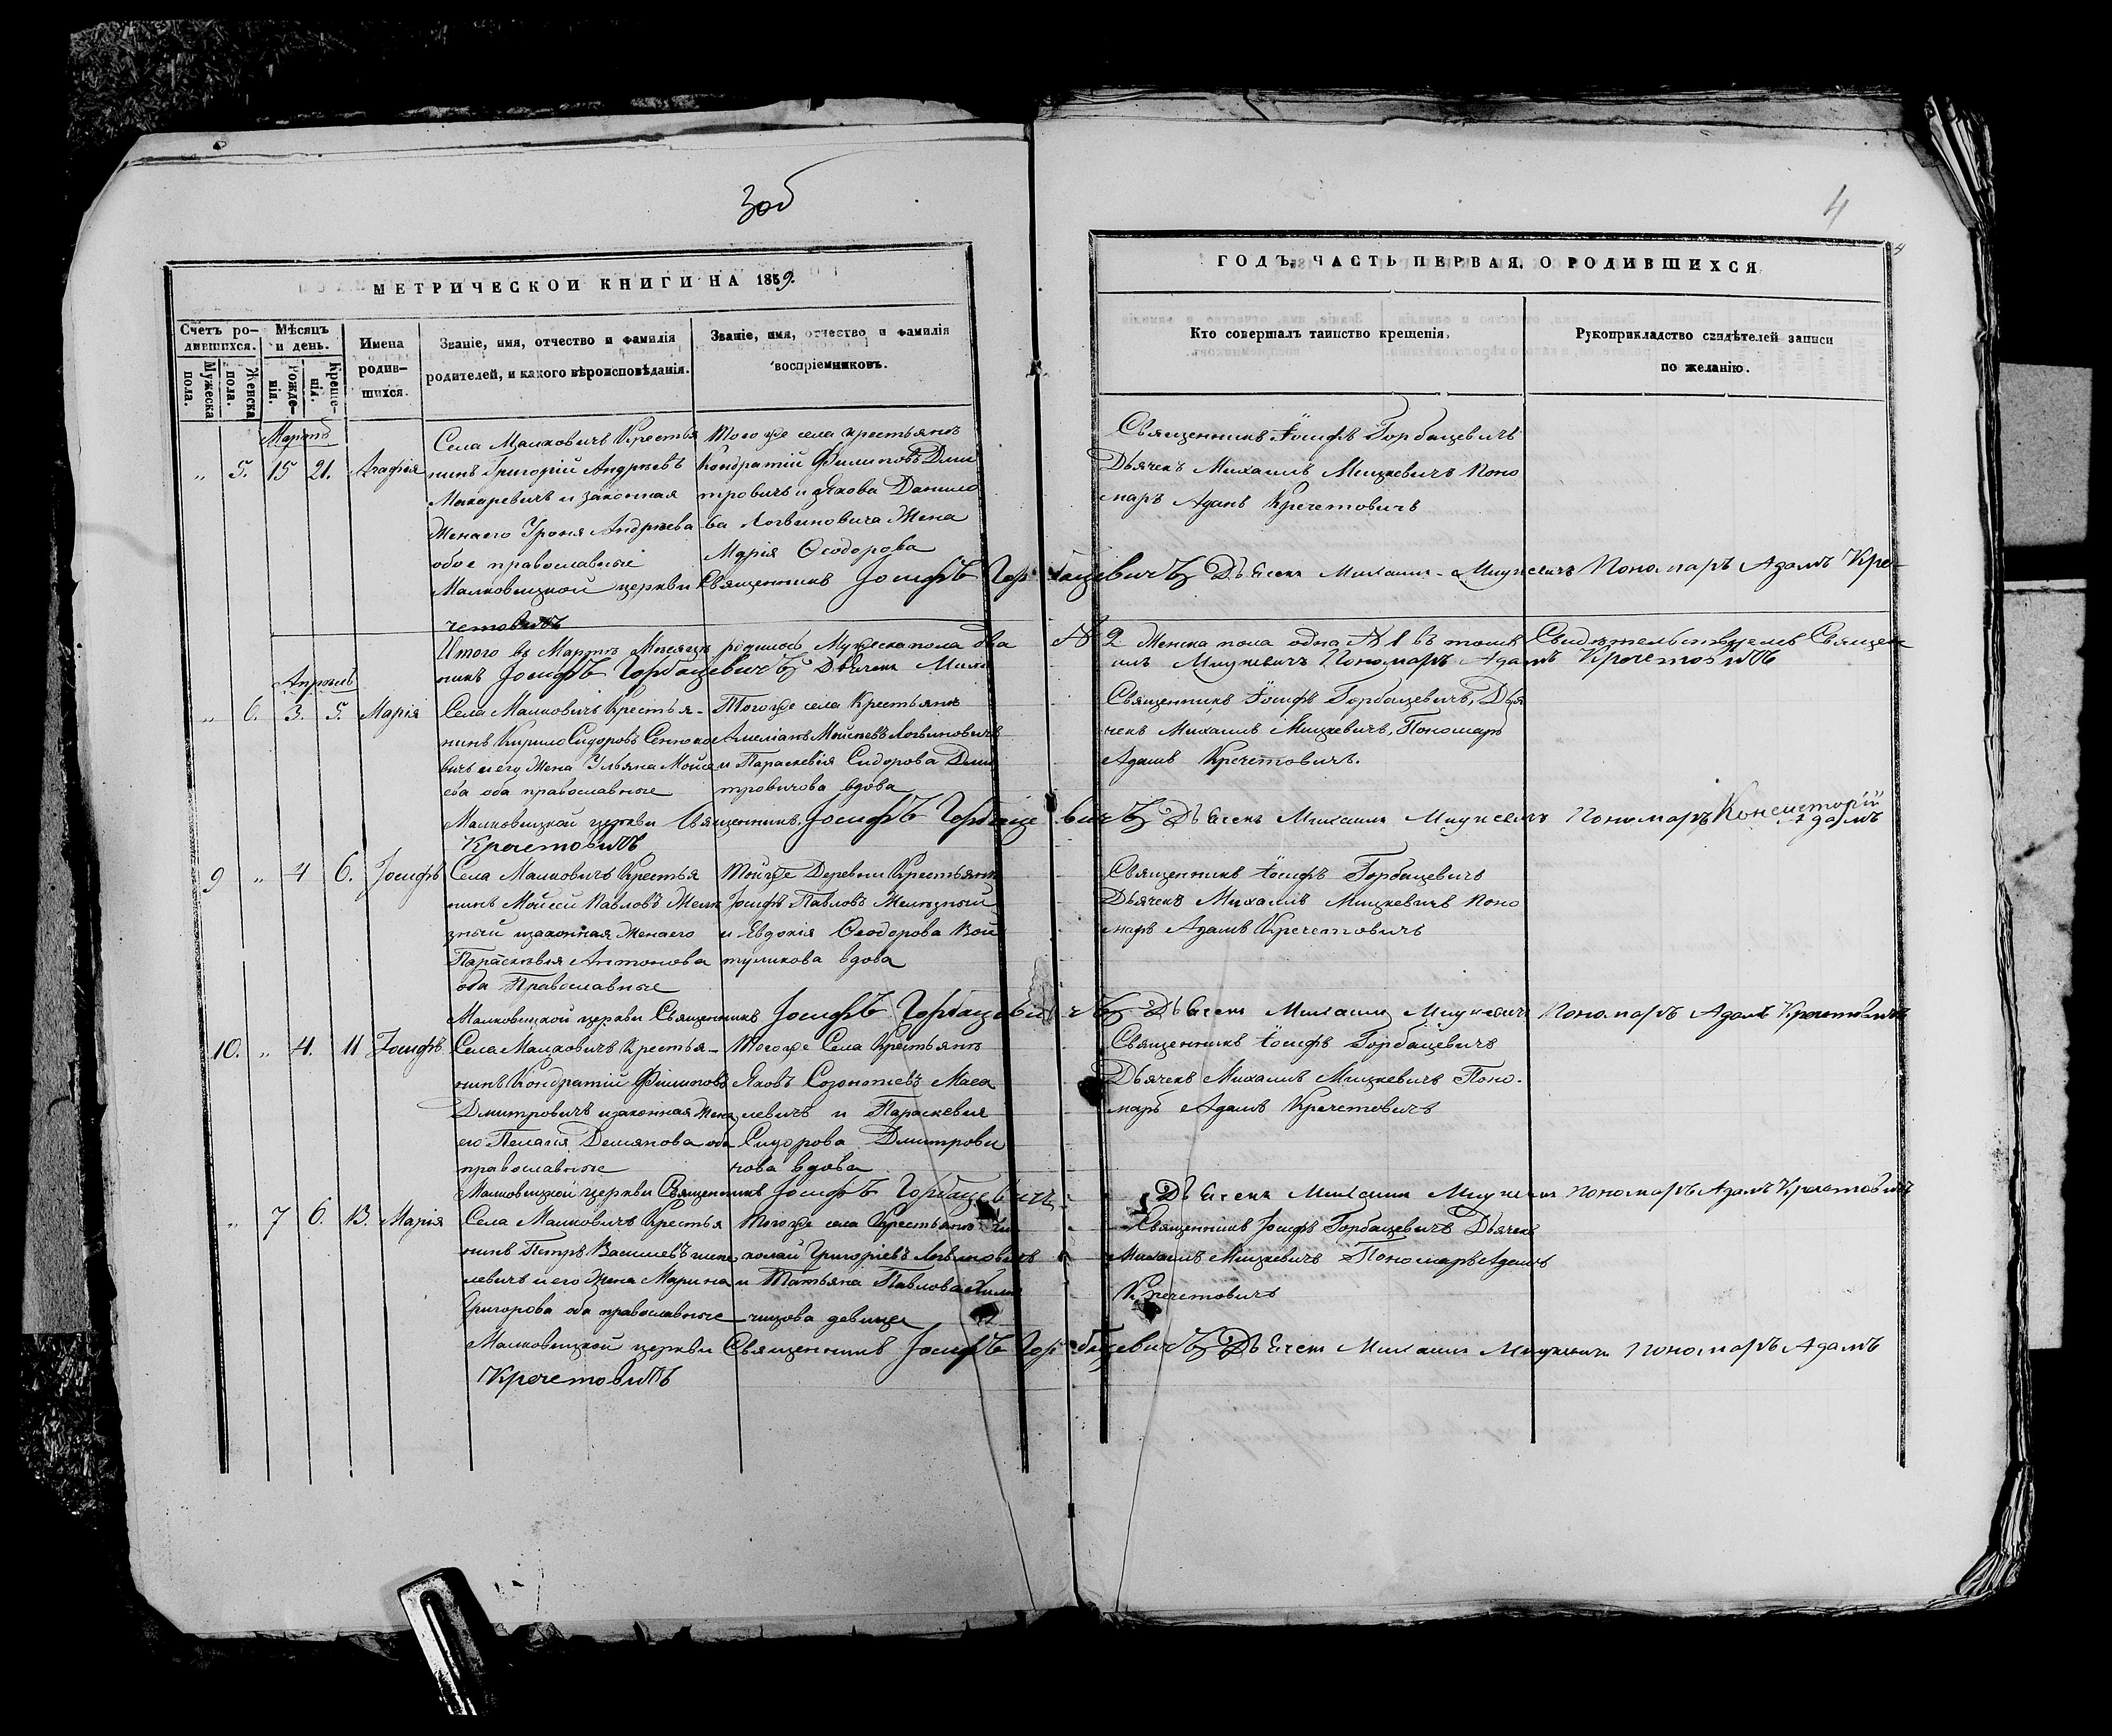 3об
4
4
МЕТРИЧЕСКОЙ КНИГИ НА 1859.
ГОДЪ, ЧАСТЬ ПЕРВАЯ, О РОДИВШИХСЯ
Счетъ ро-
дившихся.
Мужеска пола.
Женска пола.
Мѣсяцъ
и день.
Рожде-
нія.
Креще-
нія.
Имена
родив-
шихся.
Званіе, имя, отчество и фамилія
родителей, и какого вѣроисповѣданія.
Званіе, имя, отчество и фамилія
воспріемниковъ.
Кто совершалъ таинство крещенія.
Рукоприкладство свидѣтелей записи
по желанію.
Мартъ
" 5. 15 21. Агафія
Села Малковичъ Крестья
нинъ Григорій Андреевъ
Макаревичъ и законная
Жена его Андреева
обое православные
Того же села крестьянъ
Кондратій Филиповъ Дми
тровичъ и Якова Данило
ва Логвиновича Жена
Марія Ѳеодорова
Священникъ Іосифъ Горбацевичъ
Дьячекъ Михаилъ Мицкевичъ Поно
маръ Адамъ Кречетовичъ
Малковицкой церкви Священникъ Іосифъ Горбацевичъ Дьячекъ Михаилъ Мицкевичъ Пономаръ Адамъ Кре-
четовичъ
Итого въ Мартѣ Месяцѣ родилось Мужеска пола два № 2 Женска пола одна № 1 въ томъ Свидѣтельствуемъ Священ
никъ Іосифъ Горбацевичъ Дьячекъ Михаилъ Мицкевичъ Пономаръ Адамъ Кречетовичъ
Апрель
" 6. 3. 5. Марія
Села Малковичъ Крестья-
нинъ Кирило Сидоровъ
вичъ и его Жена Ульяна Мойсе
ева оба православные
Того же села Крестьянъ
Амеліанъ Мойсеевъ Логвиновичъ
и Параскевія Сидорова Дми
тровичова вдова
Священникъ Іосифъ Горбацевичъ, Дья
чекъ Михаилъ Мицкевичъ, Пономаръ
Адамъ Кречетовичъ.
Малковицкой церкви Священникъ Іосифъ Горбацевичъ Дьячекъ Михаилъ Мицкевичъ Пономаръ Адамъ
Кречетовичъ
9 " 4 6. Іосифъ
Села Малковичъ Крестья
нинъ Мойсей Павловъ Желѣ
зный и законная Жена его
Параскевія Антонова
оба Православные
Той же Деревни Крестьянинъ
Іосифъ Павловъ Желѣзный
и Евдокія Ѳеодорова Вой
туликова вдова
Священникъ Іосифъ Горбацевичъ
Дьячекъ Михаилъ Мицкевичъ Поно
маръ Адамъ Кречетовичъ
Малковицкой церкви Священникъ Іосифъ Горбацевичъ Дьячекъ Михаилъ Мицкевичъ Пономаръ Адамъ Кречетовичъ
10. " 4. 11 Іосифъ
Села Малковичъ Крестья-
нинъ Кондратій Филиповъ
Дмитровичъ и законная Жена
его Пелагія Демянова оба
православные
Того же Села Крестьянъ
Яковъ
левичъ и Параскевія
Сидорова Дмитрови
чова вдова
Священникъ Іосифъ Горбацевичъ
Дьячекъ Михаилъ Мицкевичъ Поно-
маръ Адамъ Кречетовичъ
Малковицкой церкви Священникъ Іосифъ Горбацевичъ Дьячекъ Михаилъ Мицкевичъ Пономаръ Адамъ Кречетовичъ
" 7 6. 13. Марія
Села Малковичъ Крестья
нинъ Петръ Василевъ
левичъ и его Жена Марина
Григорова оба православные
Того же села Крестьянъ Ни
колай Григоріевъ Логвиновичъ
и Татьяна Павлова
чицова девица
Священникъ Іосифъ Горбацевичъ Дьячекъ
Михаилъ Мицкевичъ Пономаръ Адамъ
Кречетовичъ
Малковицкой церкви Священникъ Іосифъ Горбацевичъ Дьячекъ Михаилъ Мицкевичъ Пономаръ Адамъ
Кречетовичъ